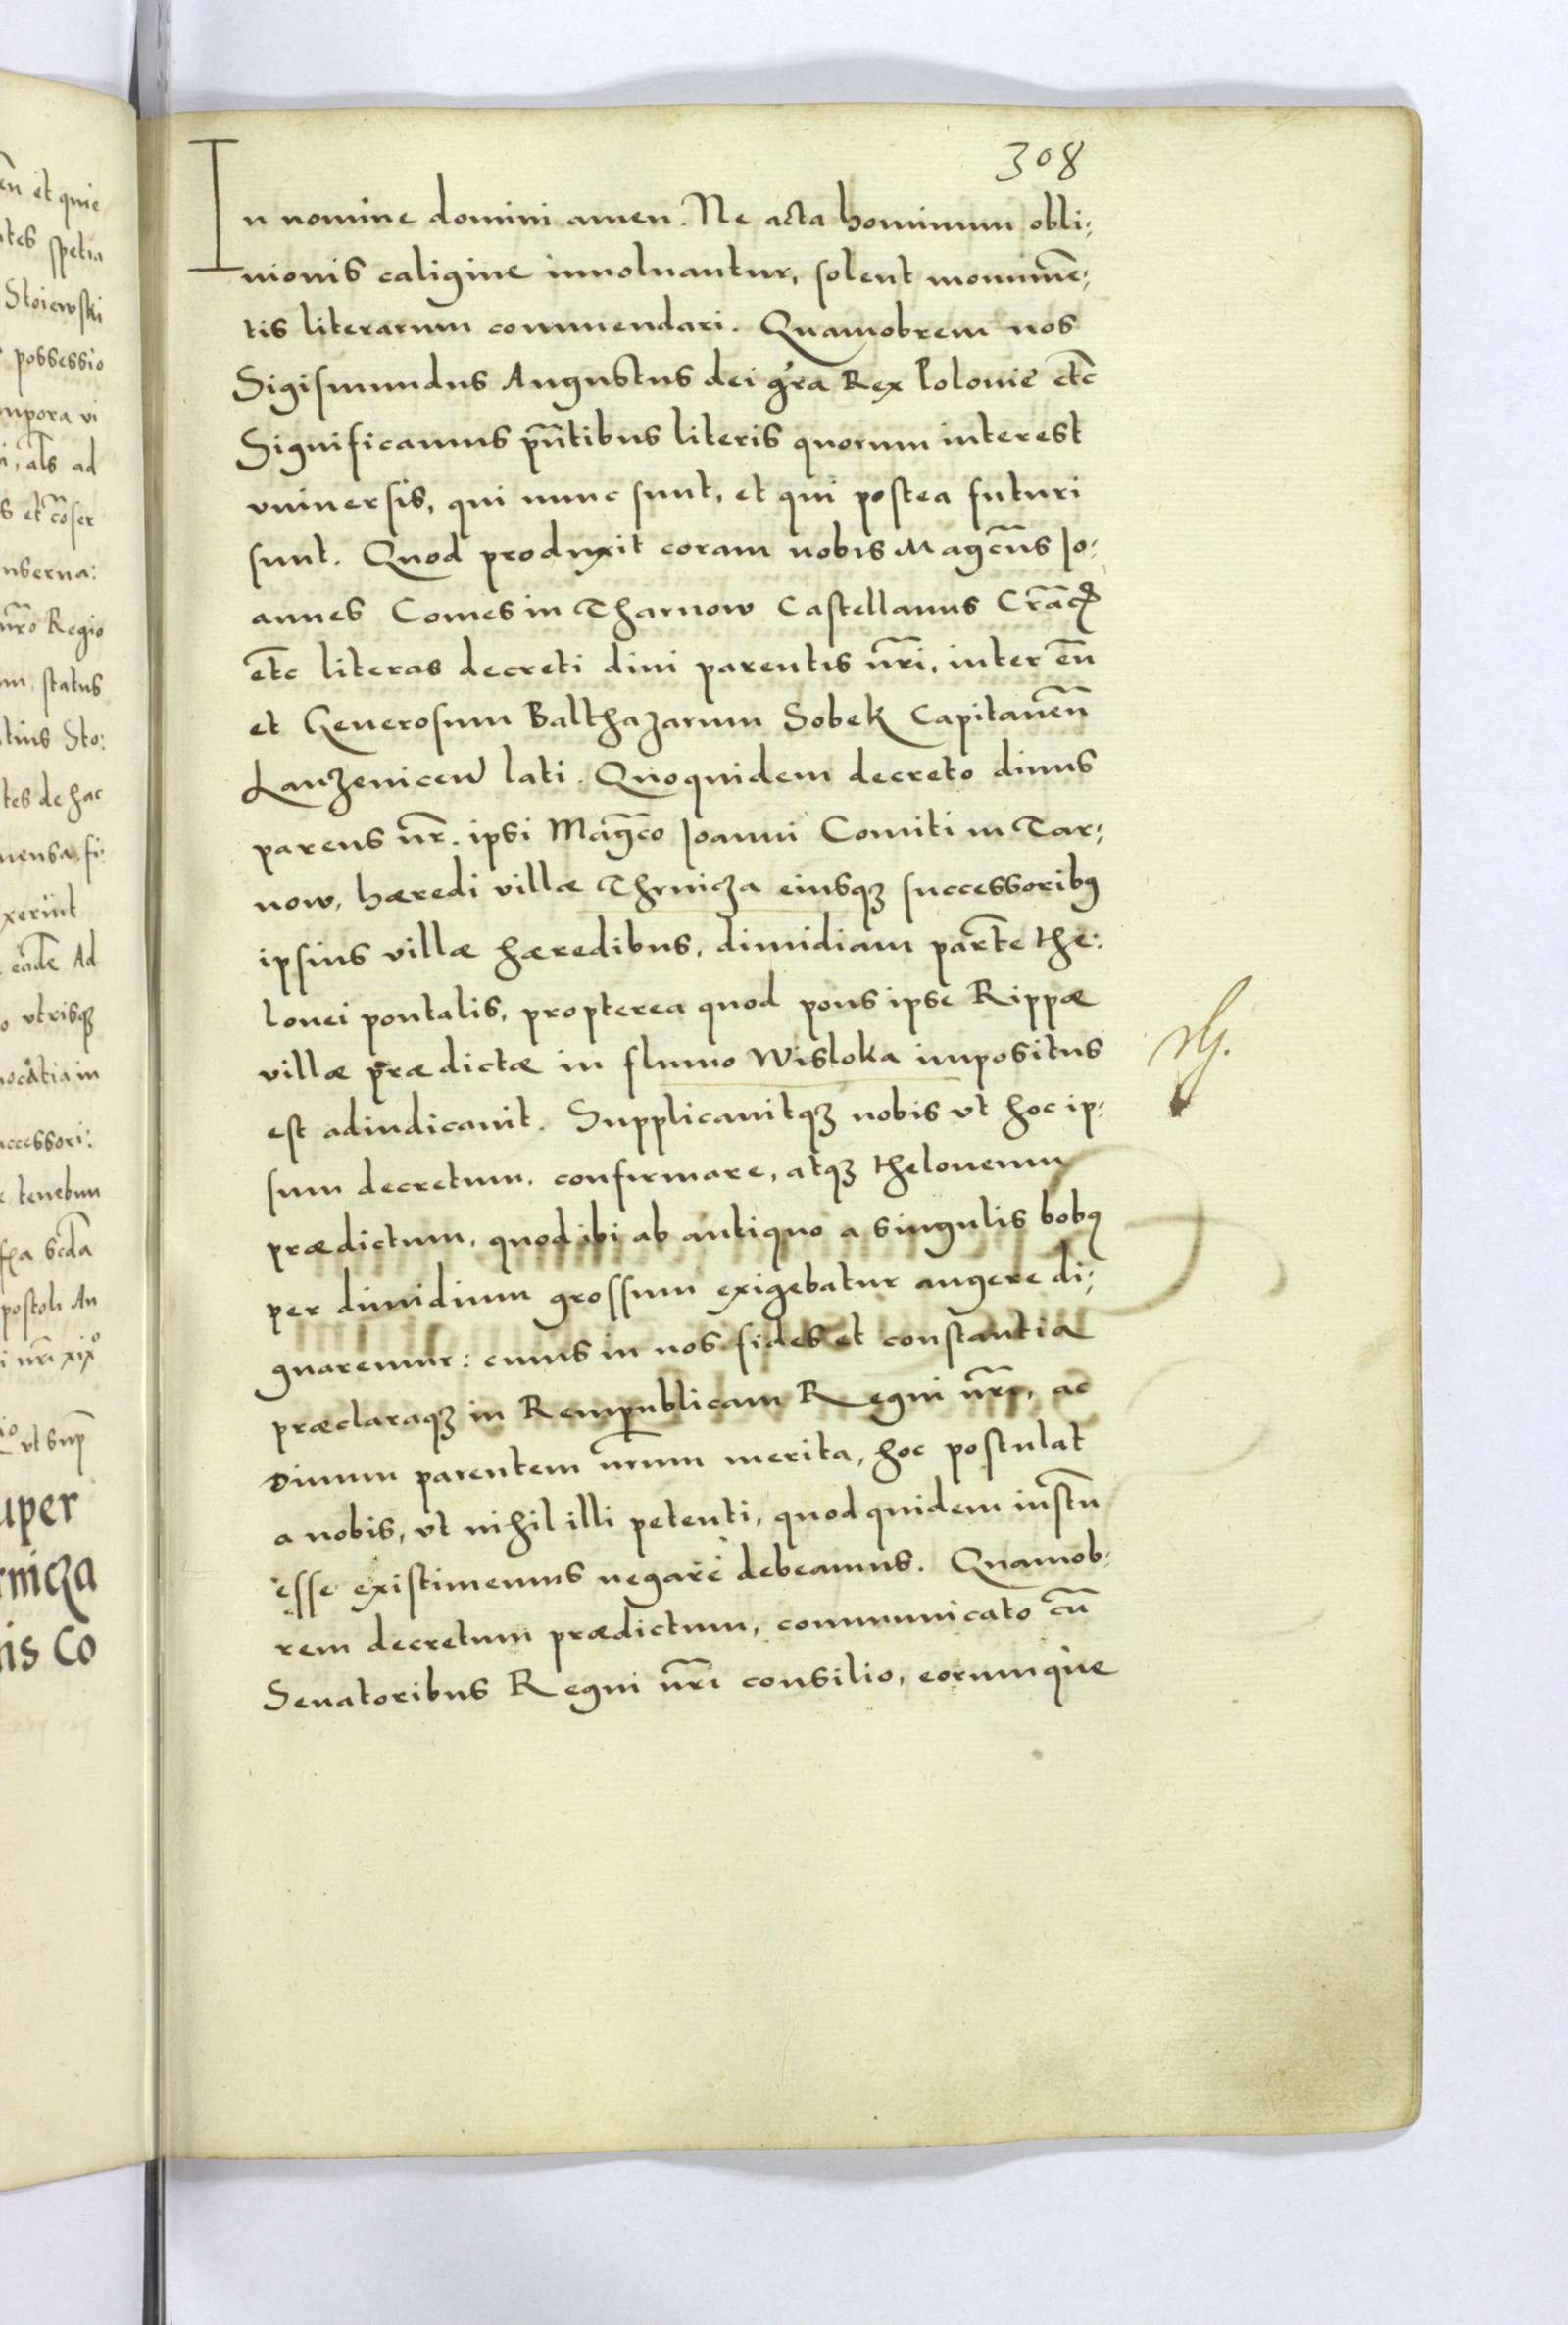 308
In nomine domini amen. Ne acta hominum obli:
uionis caligine inuoluantur, solent monumē:
tis literarum commendari. Quamobrem nos
Sigismundus Augustus dei gr̄a Rex Polonie etc̄
Significamus pn̄tibus literis quorum interest
vniuersis, qui nunc sunt, et qui postea futuri
sunt. Quod produxit coram nobis Magc̄us Jo:
annes Comes in Tharnow Castellanus Crac̄
etc̄ literas decreti diui parentis nr̄i, inter eūm
et Generosum Balthazarum Sobek Capitaneūm
lati. Quoquidem decreto diuus
parens nr̄. ipsi Magc̄o Joanni Comiti in Tar:
now, hæredi villæ Thrnicza eiusqꝫ successoribꝰ
ipsius villæ hæredibus, dimidiam partē the:
lonei pontalis, propterea quod pons ipse Rippæ
villæ prædictæ in fluuio Wisloka impositus
est adiudicauit. Supplicauitqꝫ nobis vt hoc ip:
sum decretum, confirmare, atqꝫ theloneum
prædictum, quod ibi ab antiquo a singulis bobꝰ
per dimidium grossum exigebatur augere di:
gnaremur: cuius in nos fides et constantia
præclaraqꝫ in Rempublicam Regni nr̄i, ac
Diuum parentem nr̄um merita, hoc postulat
a nobis, vt nihil illi petenti, quod quidem iustū
esse existimemus negare debeamus. Quamob:
rem decretum prædictum, communicato cū
Senatoribus Regni nr̄i consilio, eorumque
en et quie
spetia
Stoiewski
possessio
als ad
Regio
status
tes de hac
eadē Ad
vtrisqꝫ
tenebun
vt sup
uper
rnicza
nis Co